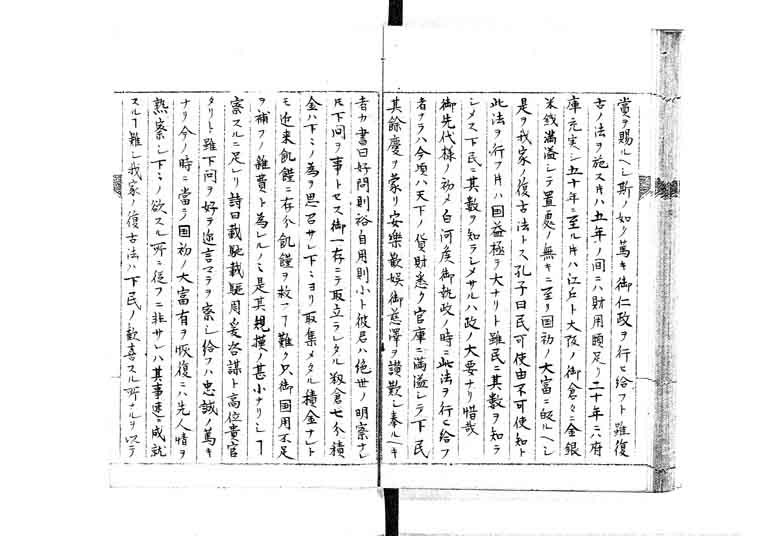 賞ヲ賜ルヘシ斯ノ如ク篤キ御仁政ヲ行ヒ給フト雖復
古ノ法ヲ施ス片ハ五年ノ間ニハ財用頭足リ二十年ニハ府
庫充実シ五十年ニ至ル片ハ江戸ト大阪ノ御倉々ニ金銀
米銭満溢シテ置處ノ無キニ至リ国初ノ大富ニ皈ルヘシ
是ヲ我家ノ復古法トス孔子曰民可使由不可使知ト
此法ヲ行フ片ハ国益極テ大ナリト雖民ニ其数ヲ知ラ
シメス下民ニ其数ヲ知ラシメサルハ政ノ大要ナリ惜哉
御先代様ノ初メ白河矦御執政ノ時ニ此法ヲ行ヒ給フ
者ナラハ今頃ハ天下ノ貨財悉ク官庫ニ満溢シテ下民
其餘慶ヲ蒙リ安樂歡娯御慈澤ヲ讃歎シ奉ルヘキ
者カ書曰好問則裕自用則小ト彼君ハ絶世ノ明察ナレ
𪜈下問ヲ事トセス御一存ニテ取立ラレタル籾倉七分積
金ハ下々ノ為ヲ思召サレ下々ヨリ取集メタル積金ナレト
モ近来飢饉ニ存外飢饉ヲ救フ𬼀難ク只御国用不足
ヲ補フノ雜費ト為レルノミ是其規摸ノ甚小ナリシヿ
察スルニ足レリ詩曰載馳載驅周爰咨謀ト高位貴官
タリト雖下問ヲ好ヲ迩言マテヲ察シ給フハ忠誠ノ篤キ
ナリ今ノ時ニ當テ国初ノ大富有ヲ恢復ニハ先人情ヲ
熟察シ下々ノ欲スル所ニ從フニ非サレハ其事速ニ成就
スルヿ難シ我家ノ復古法ハ下民ノ歡喜スル所ナルヲ以テ